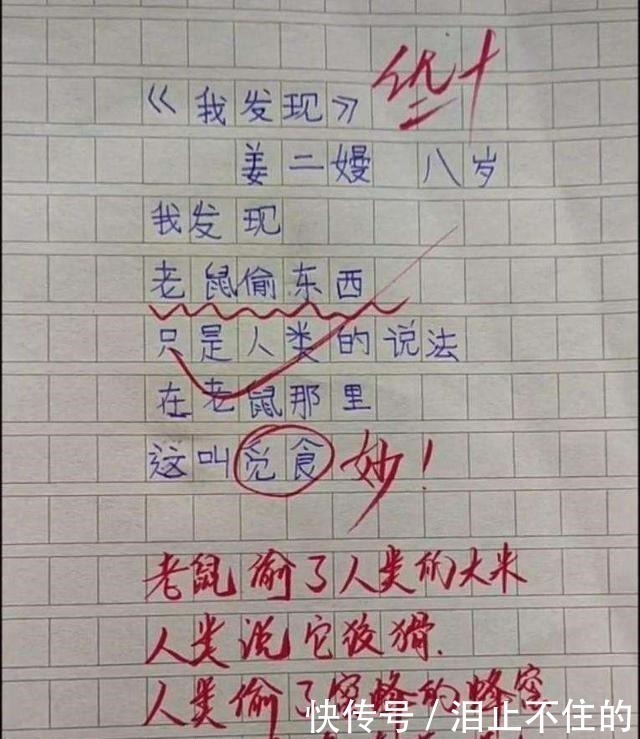 《我发现》 优+
姜二嫚 八岁
我发现
老鼠偷东西
只是人类的说法
在老鼠那里
这叫觅食 妙！
老鼠偷了人类的大米
人类说它狡猾.
人类偷了蜜蜂的蜂蜜
快传号/泪止不住的